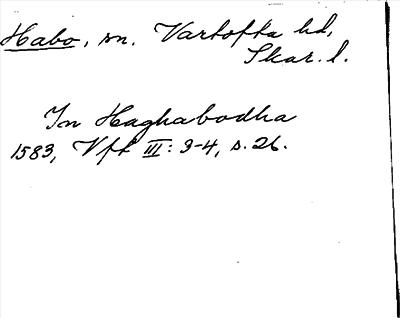 Habo, sn. Vartofta hd,
Skar. l.
In Haghabodha
1583, Vft III: 3-4, s. 26.